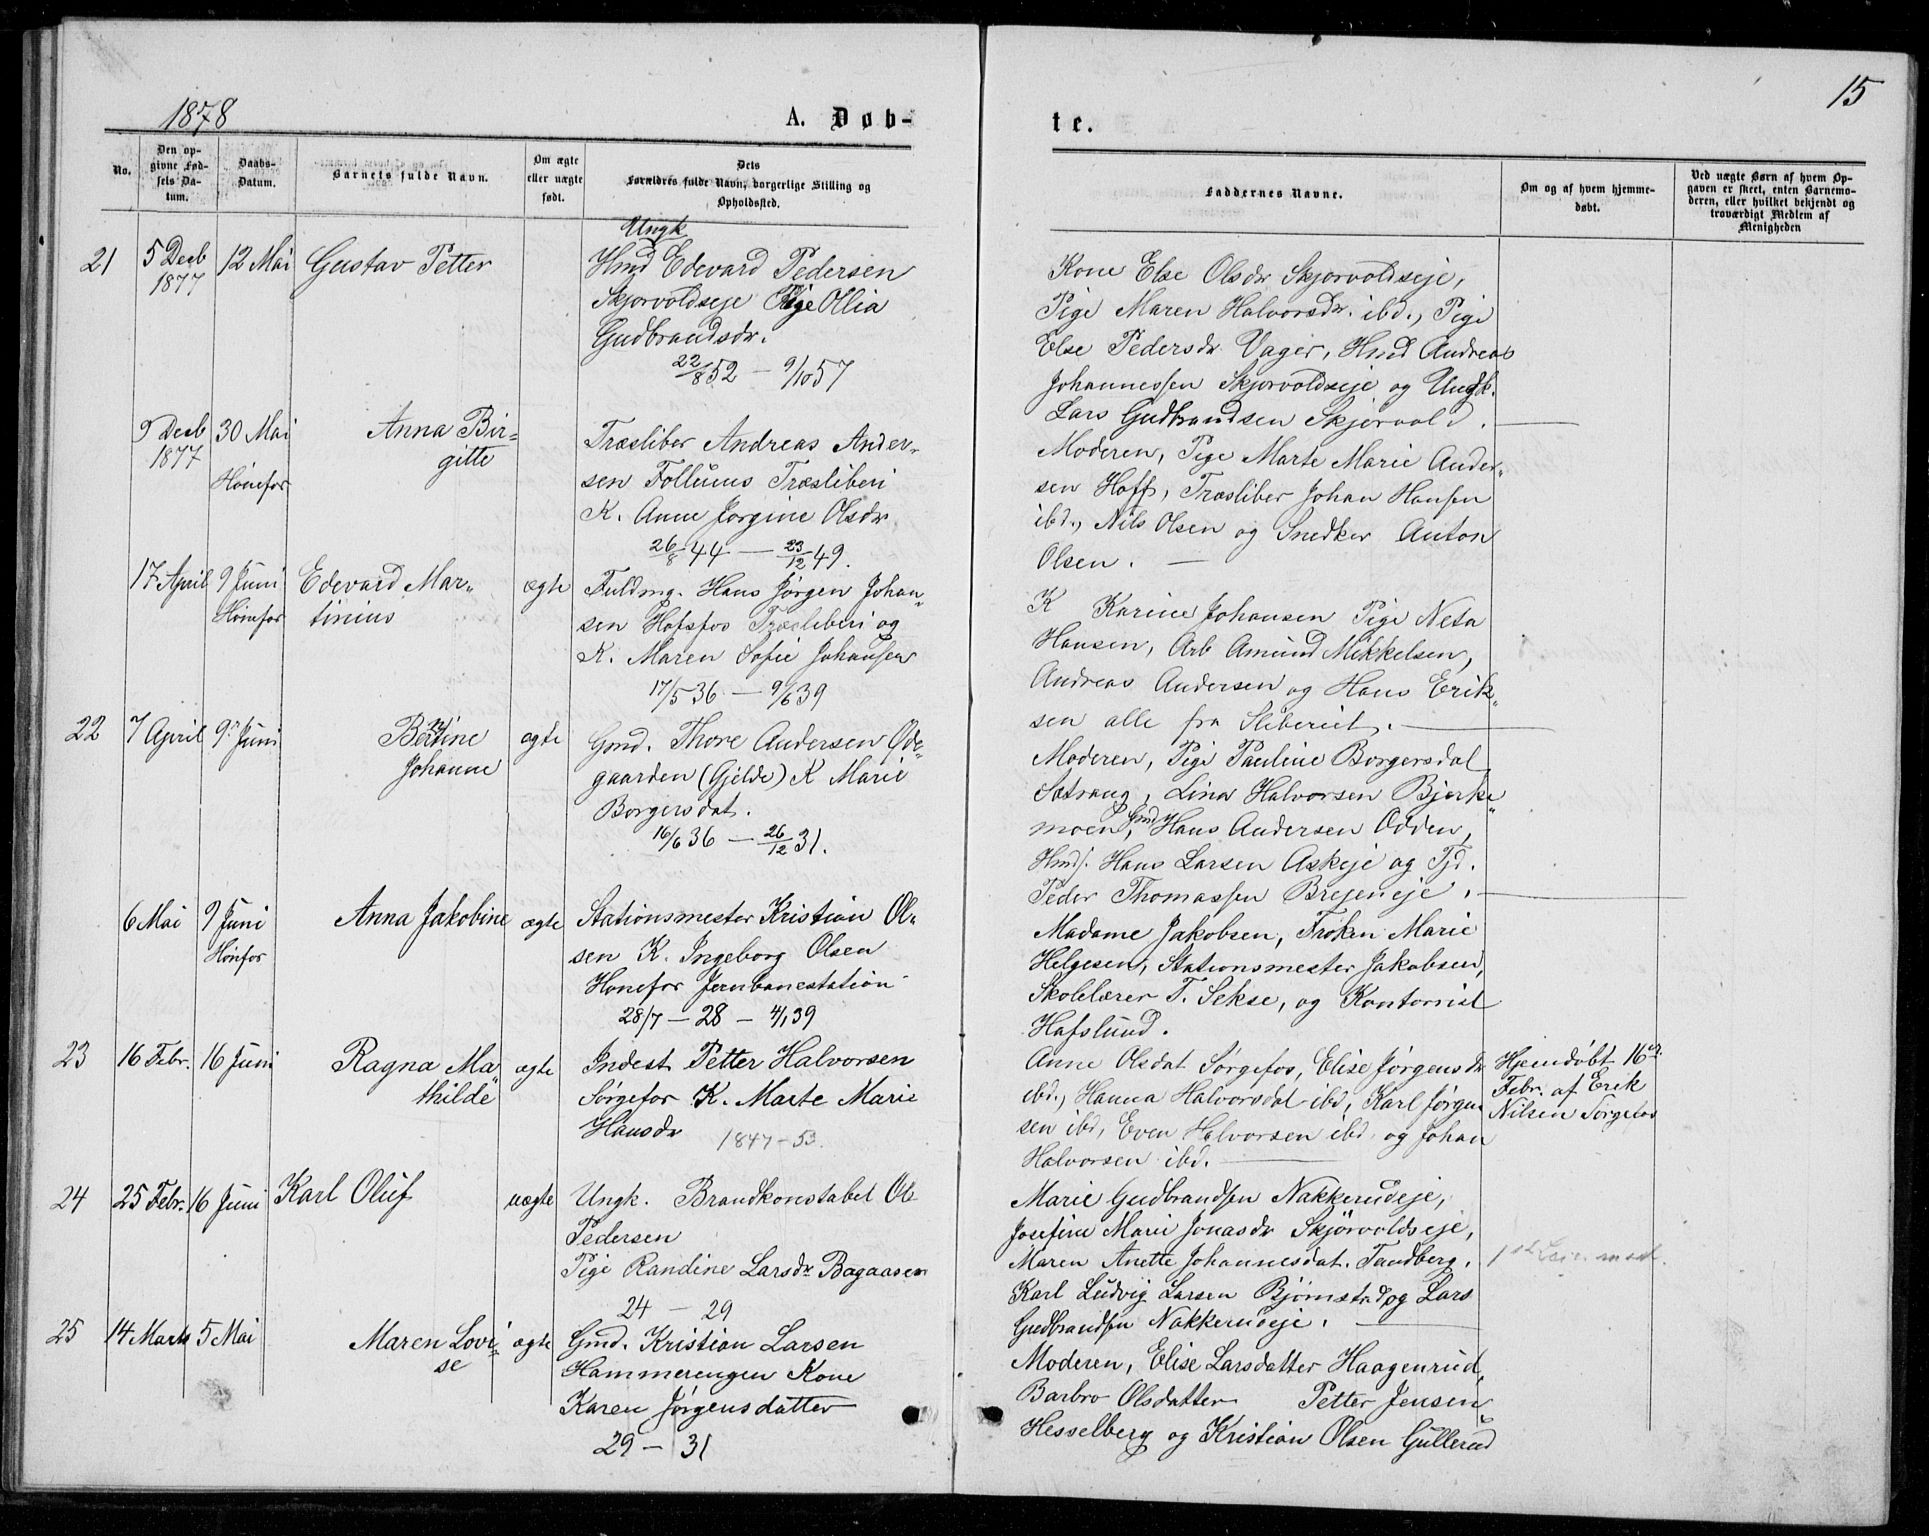 1878
A. Døb-
te.
15
No.
Den op-
givne Fød-
sels Da-
tum.
Daabs-
Datum.
Barnets fulde Navn.
Om ægte
eller uægte
født.
Dets
Forældres fulde Navn, borgerlige Stilling og
Opholdssted.
Faddernes Navne.
Om og af hvem hjemme-
døbt.
Ved uægte Børn af hvem Op-
gaven er skeet, enten Barnemo-
deren, eller hvilket bekjendt og
troværdigt Medlem af
Menigheden
21
5 Decb
1877
12 Mai
Gustav Petter
Ungk
Hmd Edevard Pedersen
Skjørvoldseje Pige Ollia
Gudbrandsdr.
22/8 52 – 9/10 57
Kone Else Olsdr Skjørvoldseje,
Pige Maren Halvorsdr. ibd., Pige
Else Pedersdr Vager, Hmd Andreas
Johannessen Skjørvoldseje og Ungk.
Lars Gudbrandsen Skjørvold.
9 Decb
1877
30 Mai
Hønefos
Anna Bir=
gitte
Træsliber Andreas Ander-
sen Follums Træsliberi
K. Anne Jørgine Olsdr
26/8 44 — 23/12 49.
Moderen, Pige Marte Marie Ander-
sen Hoff, Træsliber Johan Hansen
ibd., Nils Olsen og Snedker Anton
Olsen. —
17 April
9 Juni
Hønefos
Edevard Mar-
tinius
ægte
Fuldmg. Hans Jørgen Johan-
sen Hofsfos Træsliberi og
K. Maren Sofie Johansen
17/5 36 — 9/6 39
K Karine Johansen Pige Neta
Hansen, Arb Amund Mikkelsen,
Andreas Andersen og Hans Erik-
sen alle fra Sliberiet. —
22
7 April
9 Juni
Bertine
Johanne
ægte
Gmd. Thore Andersen Øde-
gaarden (Gjelde) K Marie
Borgersdat.
16/6 36 — 26/12 31.
Moderen, Pige Pauline Borgersdal
Sætrang, Lina Halvorsen Bjerke-
moen, Gmd Hans Andersen Odden,
Hmd. Hans Larsen Askeje og Tjd.
Peder Thomassen Brejeneje.
6 Mai
9 Juni
Hønfos
Anna Jakobine
ægte
Stationsmester Kristian Ol-
sen K. Ingeborg Olsen
Hønefos Jernbanestation
28/7 – 28 – 4/1 39
Madame Jakobsen, Frøken Marie
Helgesen, Stationsmester Jakobsen,
Skolelærer T. Sekse, og Kontorist
Hafslund.
23
16 Febr.
16 Juni
Ragna Ma
thilde
ægte
Inderst Petter Halvorsen
Sørgefos K. Marte Marie
Hansdr 1847–53.
Anne Olsdat Sørgefos, Elise Jørgensdr
ibd., Hanna Halvorsdal ibd, Karl Jørgen
sen ibd, Even Halvorsen ibd og Johan
Halvorsen ibd. —
Hjemdøbt 16de
Febr. af Erik
Nilsen Sørgefos
24
25 Febr.
16 Juni
Karl Oluf
uægte
Ungk. Brandkonstabel Ol
Pedersen
Pige Randine Larsdr Bagaasen
24 – 29
Marie Gudbrandsen Nakkerudeje,
Josefine Marie Jonasdr Skjörvoldseje,
Maren Anette Johannesdat. Tandberg,
Karl Ludvig Larsen Bjørnstad og Lars
Gudbrandsen Nakkerudeje. —
25
14 Marts
5 Mai
Maren Lovi
se
ægte
Gmd. Kristian Larsen
Hammerengen Kone
Karen Jørgensdatter
29 – 31
Moderen, Elise Larsdatter Haagenrud,
Barbro Olsdatter Petter Jensen
Hesselberg og Kristian Olsen Gullerud